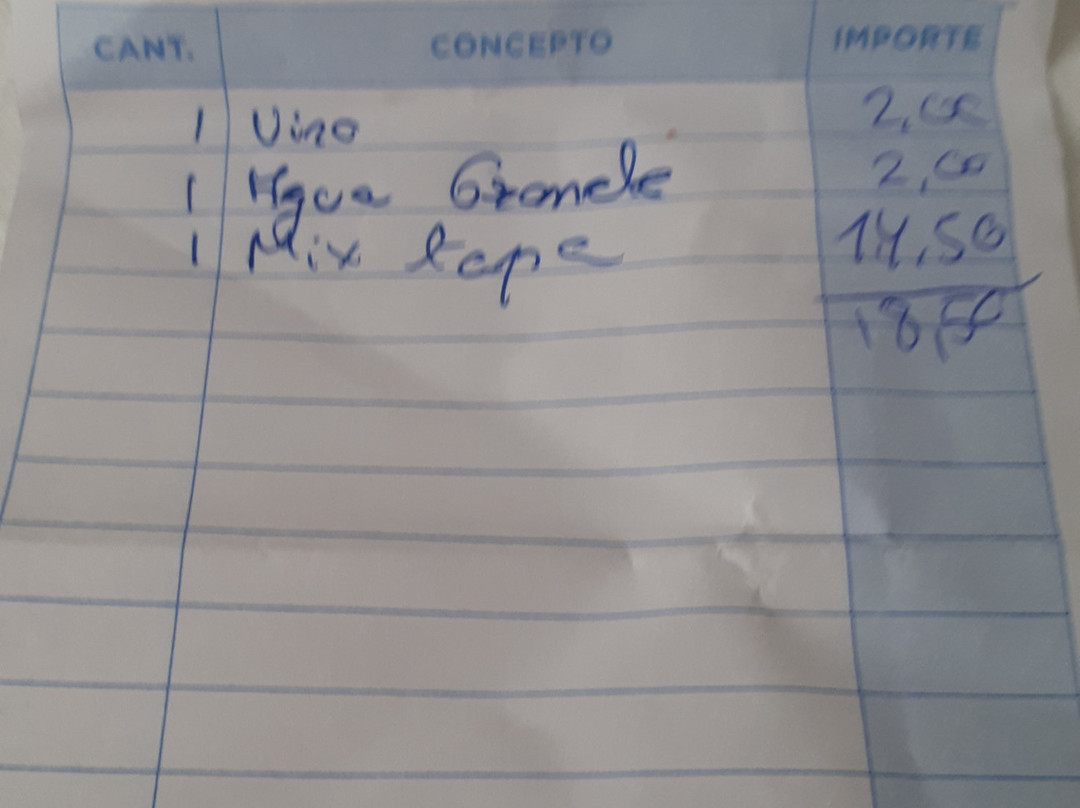 CANT. CONCEPTO IMPORTE
1 Vino 2,00
1 Agua Grande 2,00
1 Mix tapa 14,50
18,50